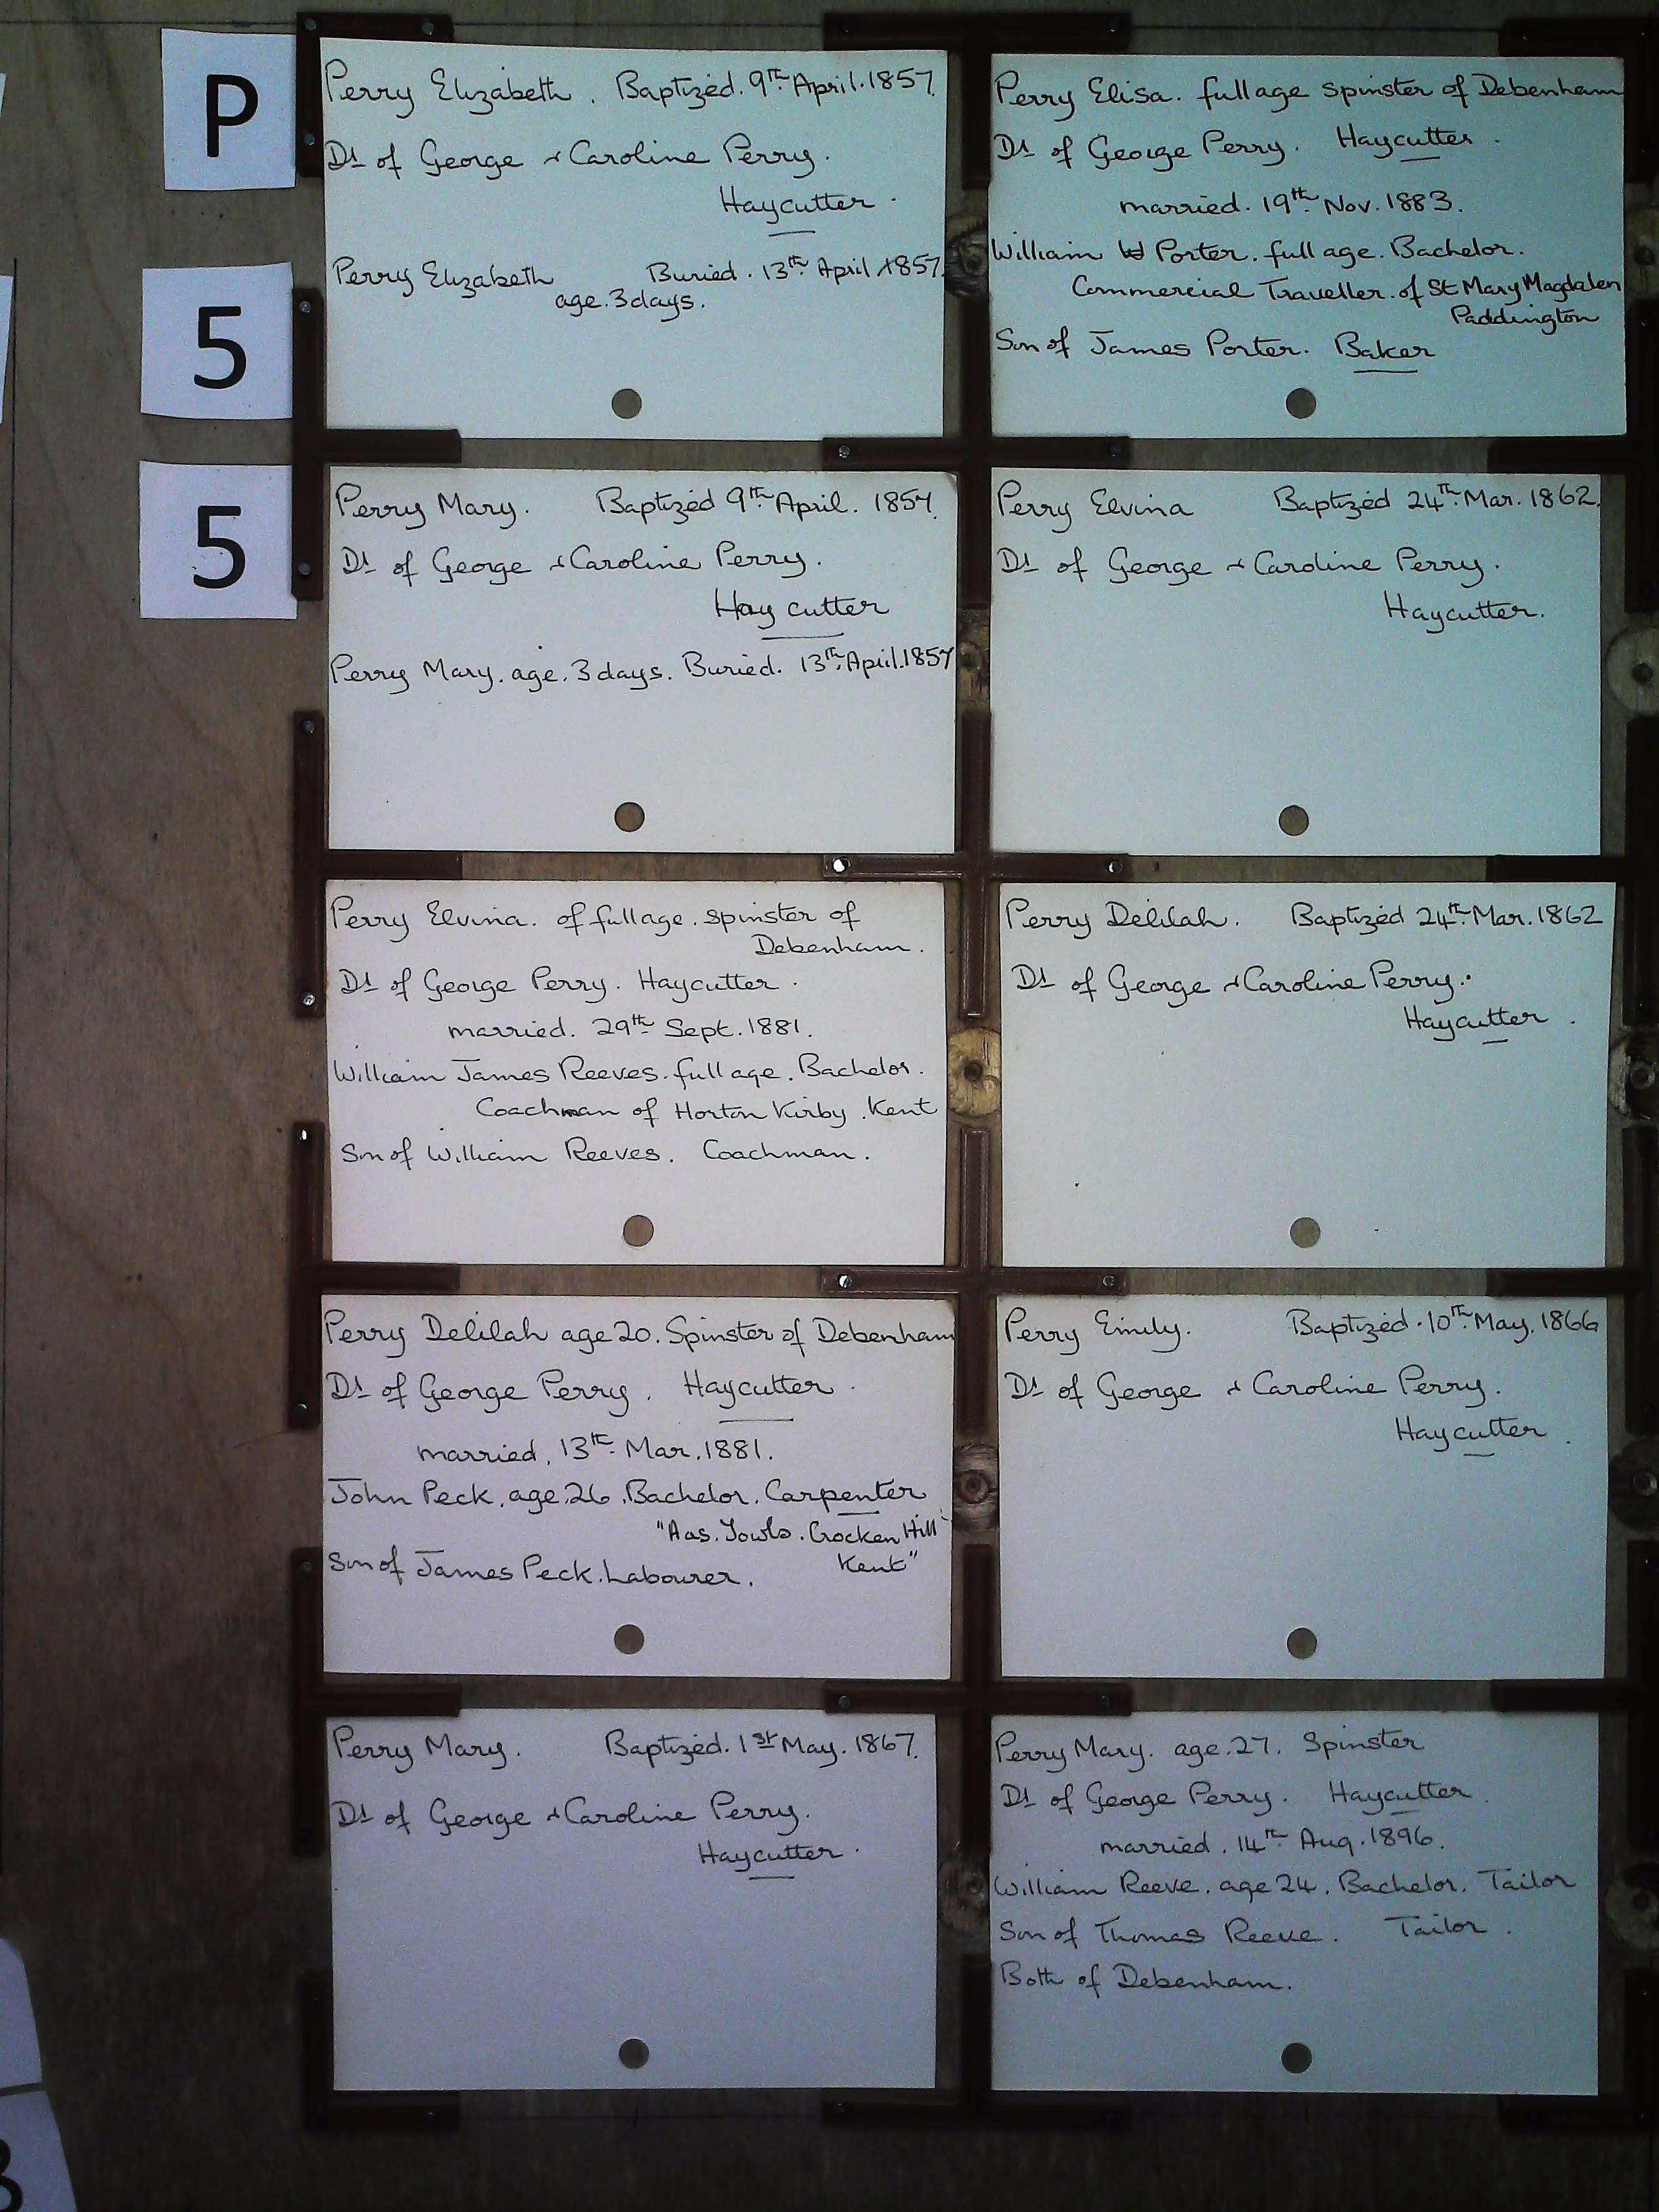 P
5
5
Perry Elizabeth . Baptized. 9th April. 1857.
Dt of George & Caroline Perry.
Haycutter .
Perry Elizabeth Buried. 13th April 1857.
age. 3 days.
Perry Elisa. full age spinster of Debenham
Dt of George Perry. Haycutter .
married. 19th Nov. 1883.
William W Porter. full age. Bachelor.
Commercial Traveller. of St Mary Magdalen
Paddington
Son of James Porter. Baker
Perry Mary. Baptized 9th April. 1857.
Dt of George & Caroline Perry.
Hay cutter
Perry Mary. age. 3 days. Buried. 13th April. 1857
Perry Elvina Baptized 24th Mar. 1862.
Dt of George & Caroline Perry.
Haycutter.
Perry Elvina. of full age. spinster of
Debenham.
Dt of George Perry. Haycutter .
married. 29th Sept. 1881.
William James Reeves. full age. Bachelor.
Coachman of Horton Kirby. Kent
Son of William Reeves. Coachman.
Perry Delilah. Baptized 24th Mar. 1862
Dt of George & Caroline Perry.
Haycutter .
Perry Delilah age 20. Spinster of Debenham
Dt of George Perry. Haycutter .
married. 13th Mar. 1881.
John Peck. age. 26. Bachelor. Carpenter
Crocken Hill
Kent"
Son of James Peck. Labourer.
Perry Emily. Baptized. 10th May. 1866
Dt of George & Caroline Perry.
Haycutter .
Perry Mary. Baptized. 1st May. 1867.
Dt of George & Caroline Perry.
Haycutter .
Perry Mary. age. 27. Spinster
Dt of George Perry. Haycutter.
married. 14th Aug. 1896.
William Reeve. age 24. Bachelor. Tailor
Son of Thomas Reeve. Tailor .
Both of Debenham.